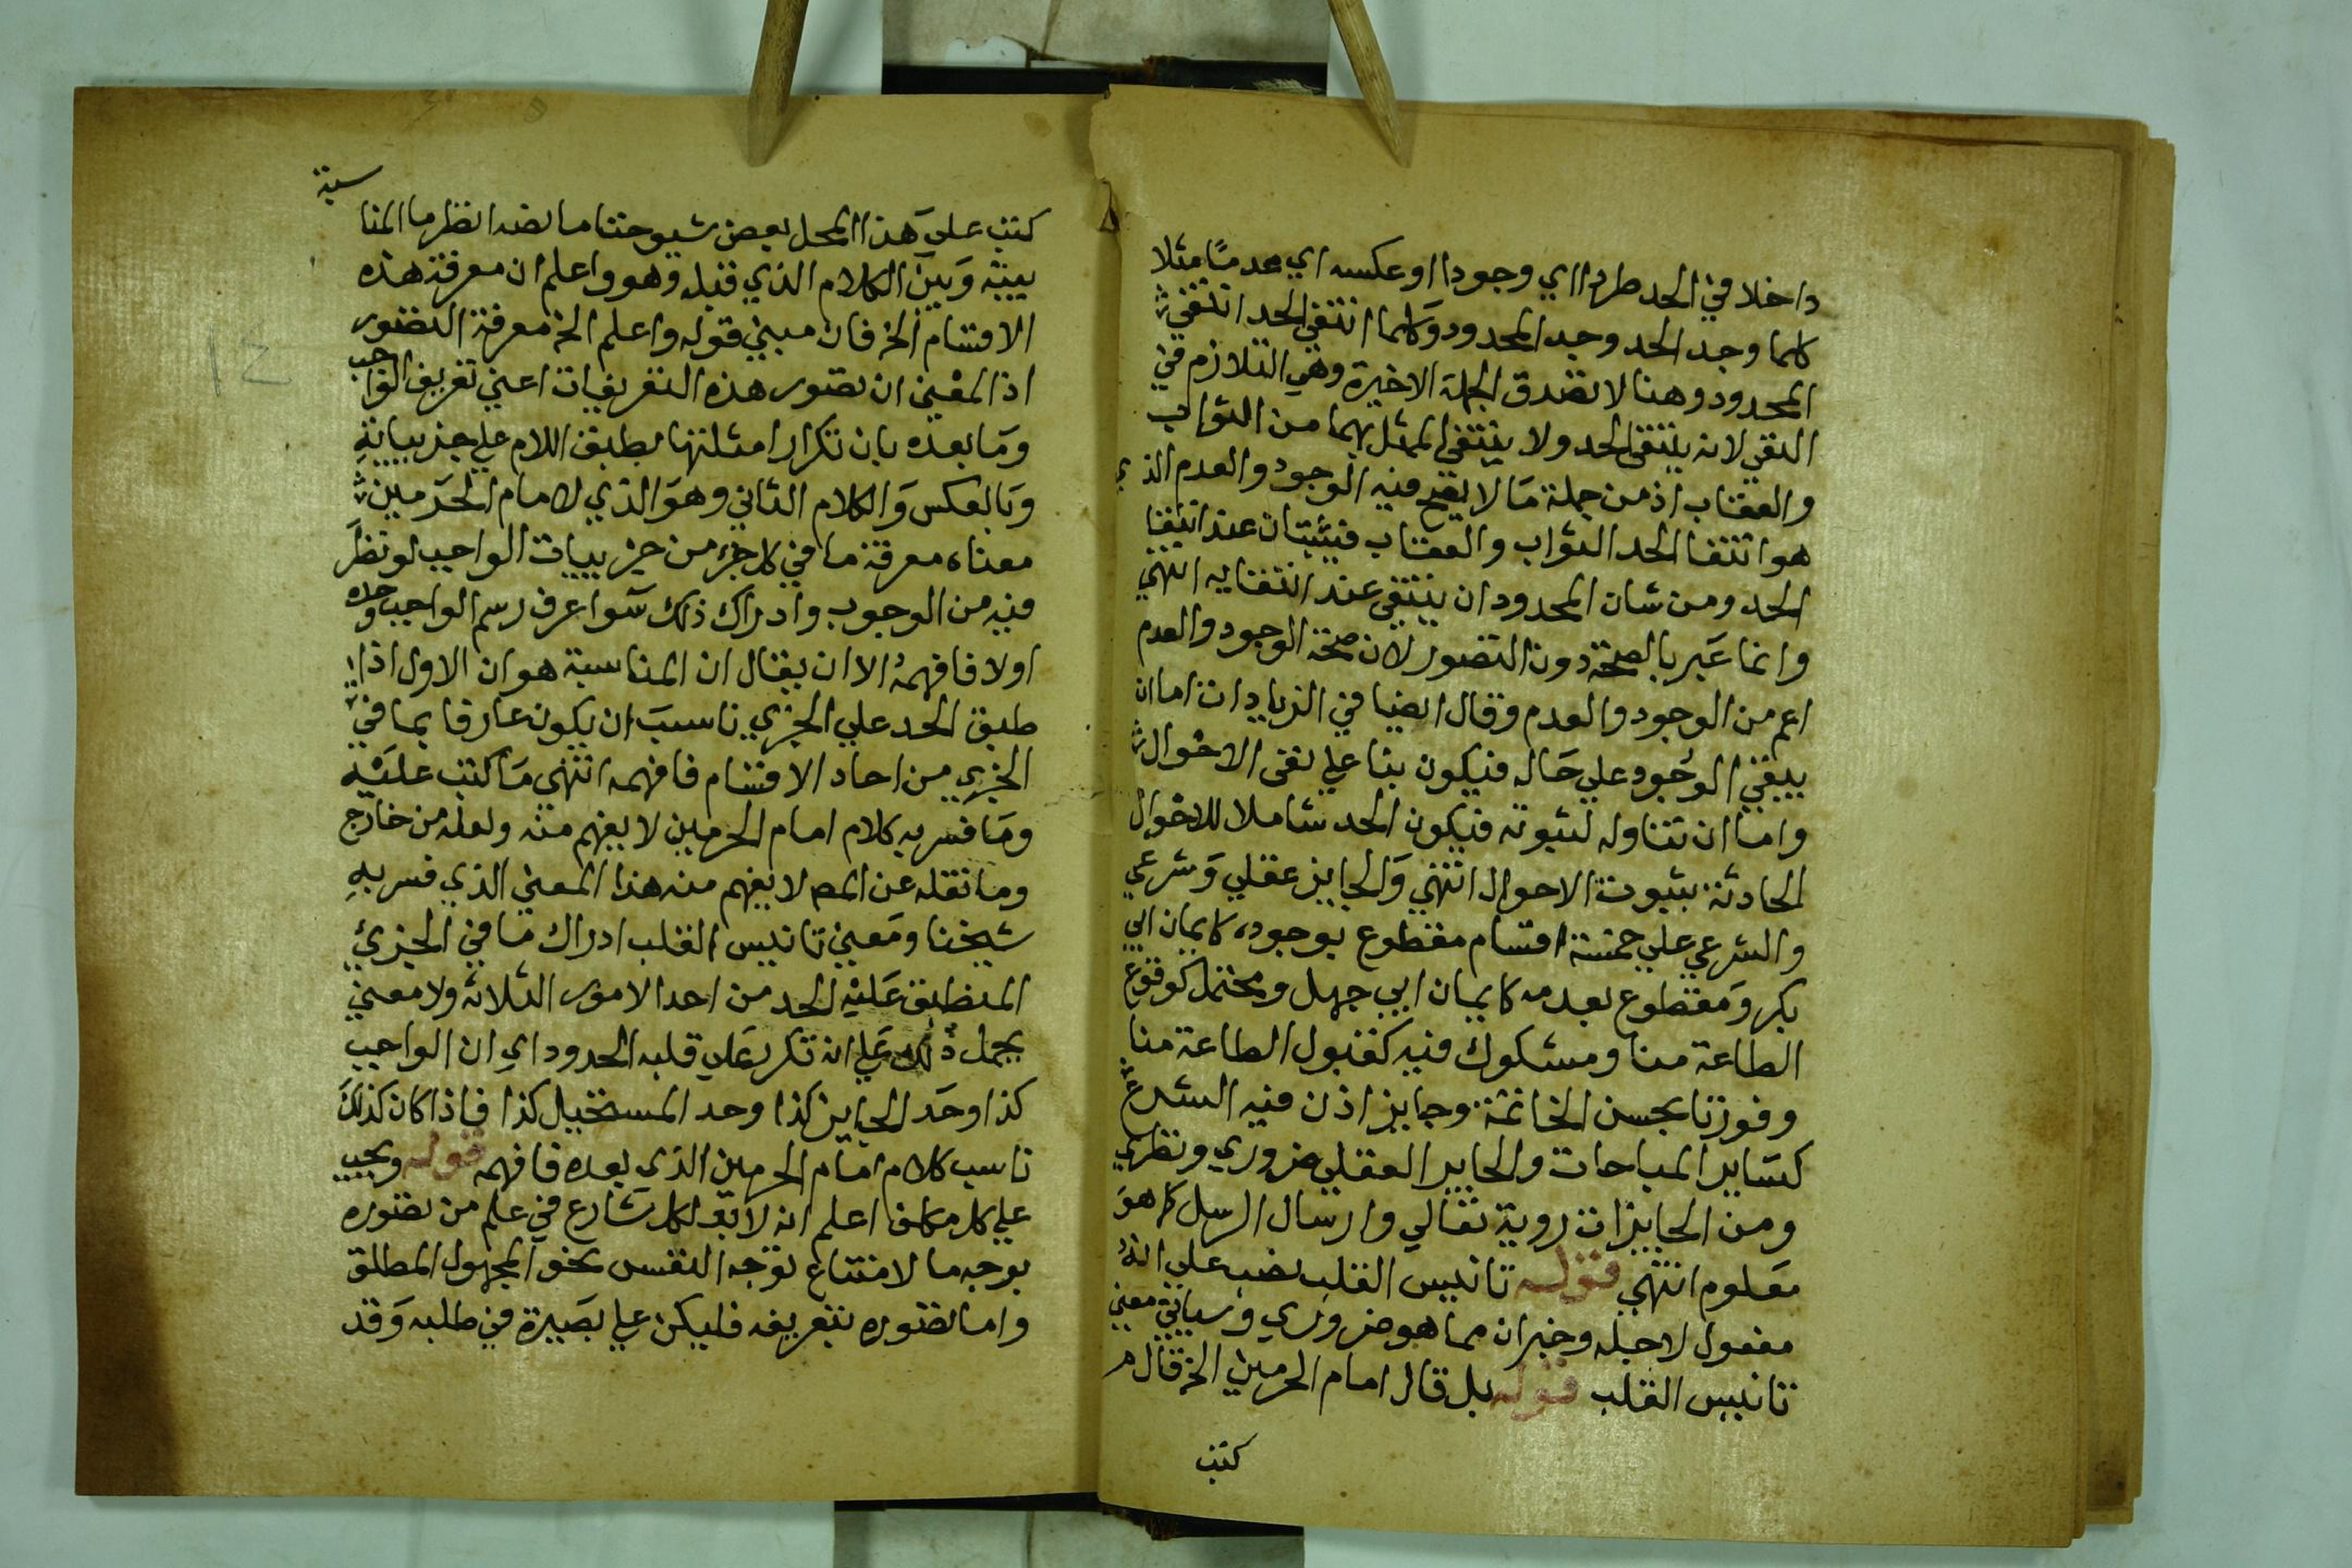 داخلا في الحد طردا اي وجودا او عكسه اي عدمًا مثلا
كلما وجد الحد وجد المحدود وكلما انتفي الحد انتفي
المحدود وهنا لا تصدق الجملة الاخيرة وهي التلازم في
النفي لانه ينتفي الحد ولا ينتفي الممثل بهما من الثواب
والعقاب اذ من جملة مَا لا يصح فيه الوجود والعدم الذي
هو انتفا الحد الثواب والعقاب فيثبتان عند انتفا
الحد ومن شان المحدود ان ينتفي عند انتفايه انتهي
وانما عَبر بالصحة دون التصور لان صحة الوجود والعدم
اعم من الوجود والعدم وقال ايضا في الزيادات اما ان
يبقي الوجود علي حَاله فيكون بنا علي نفي الاحوال
واما ان تتناوله لثبوته فيكون الحد شاملا للاحوال
الحادثة بثبوت الاحوال انتهي وَالجايز عقلي وَشرعي
والشرعي علي خمسة اقسام مقطوع بوجوده كايمان ابي
بكر وَمقطوع بعدمه كايمان ابي جهل ومحتمل كوقوع
الطاعة منا ومشكوك فيه كقبول الطاعة منا
وفوزنا بحسن الخاتمة وجايز اذن فيه الشرع
كسَاير المباحات والجايز العقلي ضروري ونظري
ومن الجايزات روية تعالي وارسال الرسل كما هوَ
مَعلوم انتهي قوله تانيس القلب نصب علي انهُ
مفعول لاجله وخبر ان مما هو ضروري وسياتي معني
تانيس القلب قوله بل قال امام الحرمين الخ قال م
كتب
سبة
كتب علي هَذا المحل بعض شيوخنا ما نصه انظر ما المنا
بينه وَبين الكلام الذي قبله وهو واعلم ان معرفة هذه
الاقسام الخ فان مبني قوله واعلم الخ معرفة التصور
اذ المعْني ان تصور هذه التعريفات اعني تعريف الواجب
ومَا بعده بان تكرار امثلتها بطبق اللام علي جزيياته
وَبالعكس وَالكلام الثاني وهوَ الذي لامام الحرَمين
معناه معرفة ما في كل جزء من جزييات الواجب لو نظرَ
فيه من الوجوب وادراك ذلك سَوا عرف رسم الواجب وحده
اولا فافهمهُ الا ان يقال ان المناسبة هو ان الاول اذا
طبق الحد علي الجزي ناسبَ ان يكون عارفا بما في
الجزي من احاد الاقسام فافهمه انتهي مَا كتب عليْه
ومَا فسر به كلام امام الحرمين لا يفهم منه ولعله من خارج
وما نقله عن المص لا يفهم منه هذا المعني الذي فسر بهِ
شيخنا ومَعني تانيس القلب ادراك مَا في الجزئ
المنطبق عَليْه الحد من احد الامور الثلاثة ولا معني
بجمل ذلك عَلي انه تكرر عَلي قلبه الحدود اي ان الواجب
كذا وحَد الجايز كذا وحد المستحيل كذا فاذا كان كذلكَ
ناسب كلام امَام الحرمين الذي بعده فافهمه قوله ويجب
علي كل مكلف اعلم انه لا بد لكل شَارع في علم من تصوره
بوجه ما لامتناع توجه النفس نحو المجهول المطلق
واما تصوره بتعريفه فليكن علي بصَيرة في طلبه وَقد